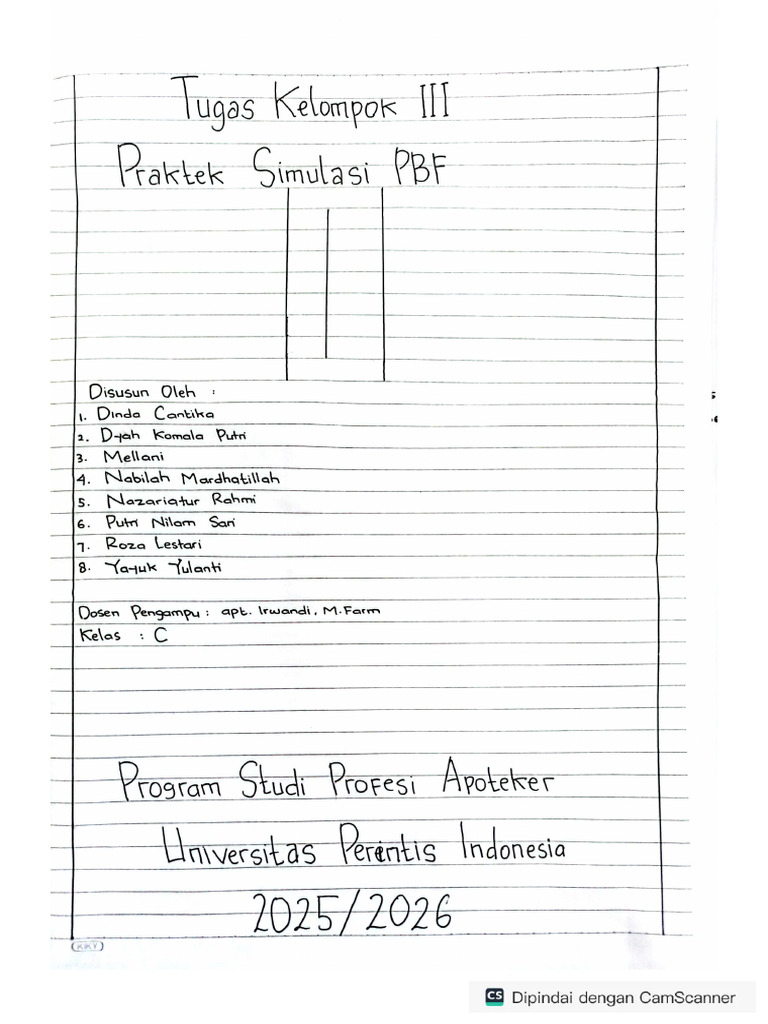 Tugas Kelompok III
Praktek Simulasi PBF
Disusun Oleh :
1. Dinda Cantika
2. Dyah Komala Putri
3. Mellani
4. Nabilah Mardhatillah
5. Nazariatur Rahmi
6. Putri Nilam Sari
7. Roza Lestari
8. Yayuk Yulanti
Dosen Pengampu : apt. Irwandi, M.Farm
Kelas : C
Program Studi Profesi Apoteker
Universitas Perintis Indonesia
2025/2026
KKY
CS Dipindai dengan CamScanner